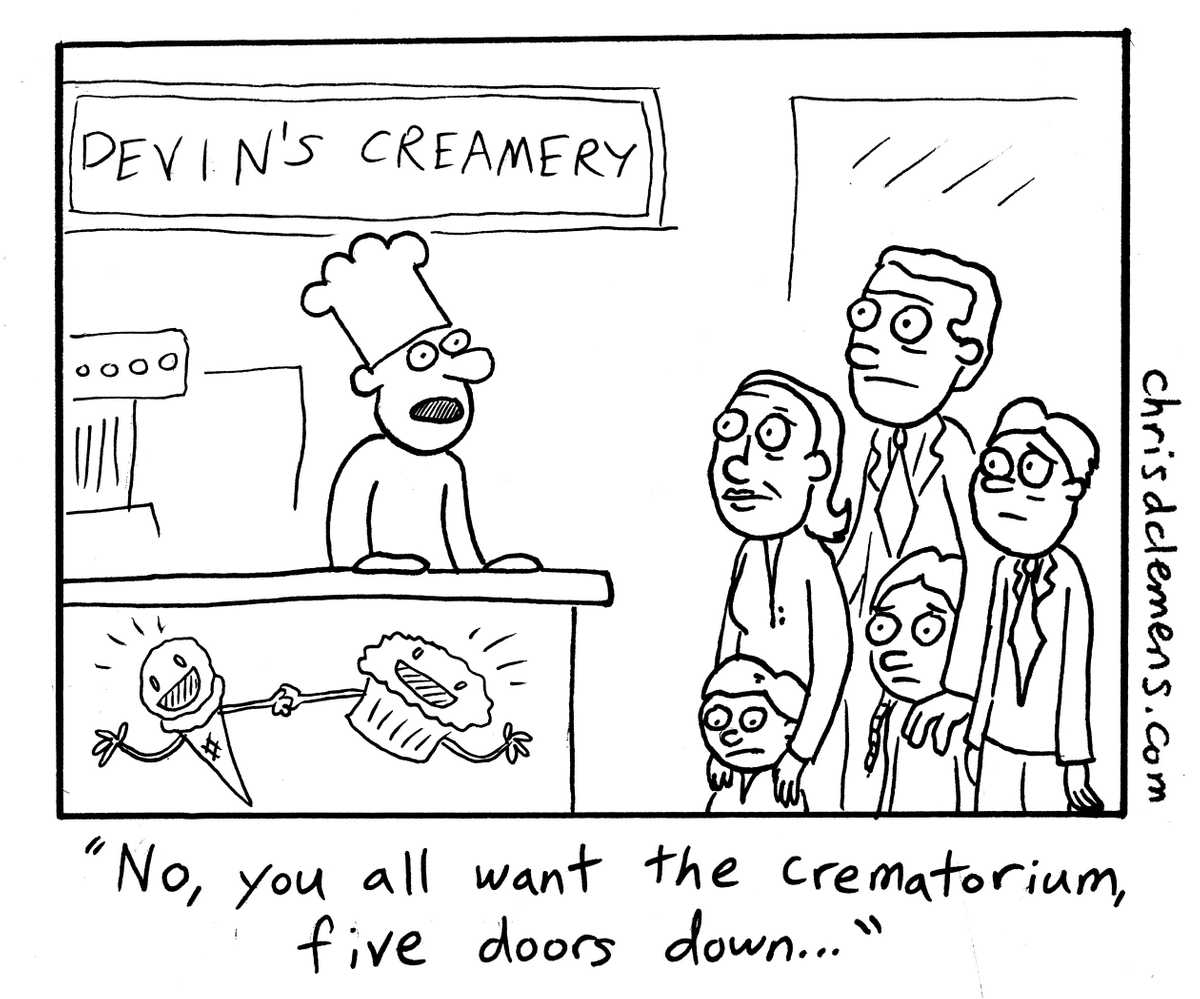 DEVIN'S CREAMERY
chrisdclemens.com
"No, you all want the crematorium,
five doors down..."